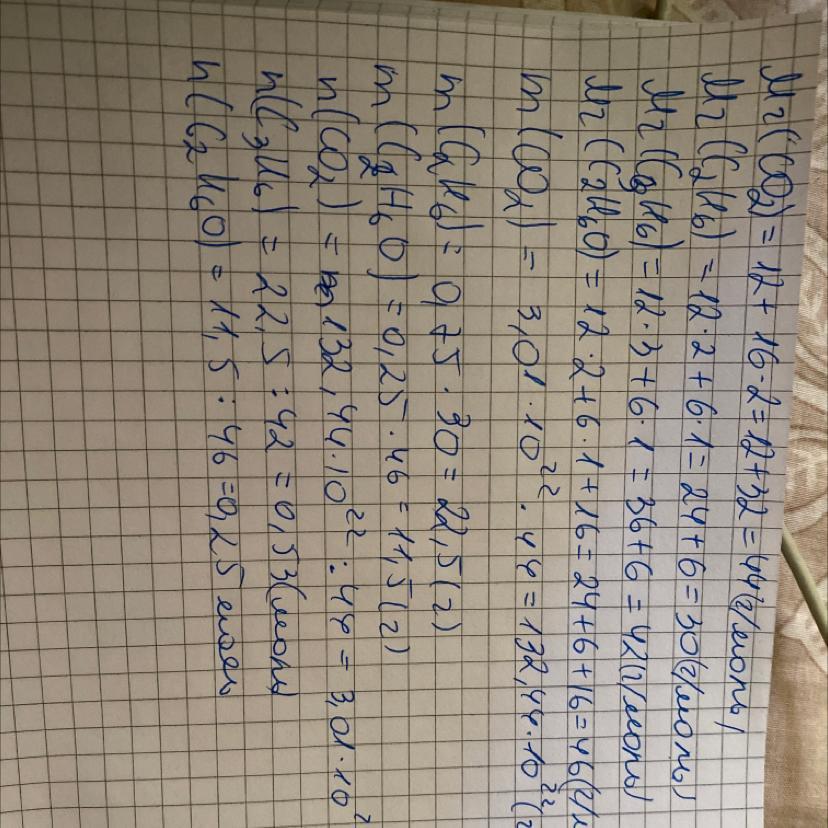 Mr(CO2) = 12 + 16·2 = 12+32 = 44(г/моль)
Mr(C2H6) = 12·2 + 6·1 = 24+6 = 30(г/моль)
Mr(C3H6) = 12·3 + 6·1 = 36+6 = 42(г/моль)
Mr(C2H6O) = 12·2+6·1+16 = 24+6+16 = 46(г/м
m(CO2) = 3,01·10²²·44 = 132,44·10²² (г
m(C2H6) = 0,75·30 = 22,5(г)
m(C2H6O) = 0,25·46 = 11,5(г)
n(CO2) = 132,44·10²² : 44 = 3,01·10²
n(C3H6) = 22,5 : 42 = 0,53(моль)
n(C2H6O) = 11,5 : 46 = 0,25 моль